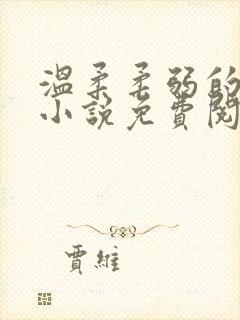 溫柔柔弱的
小說免費閱
賈維